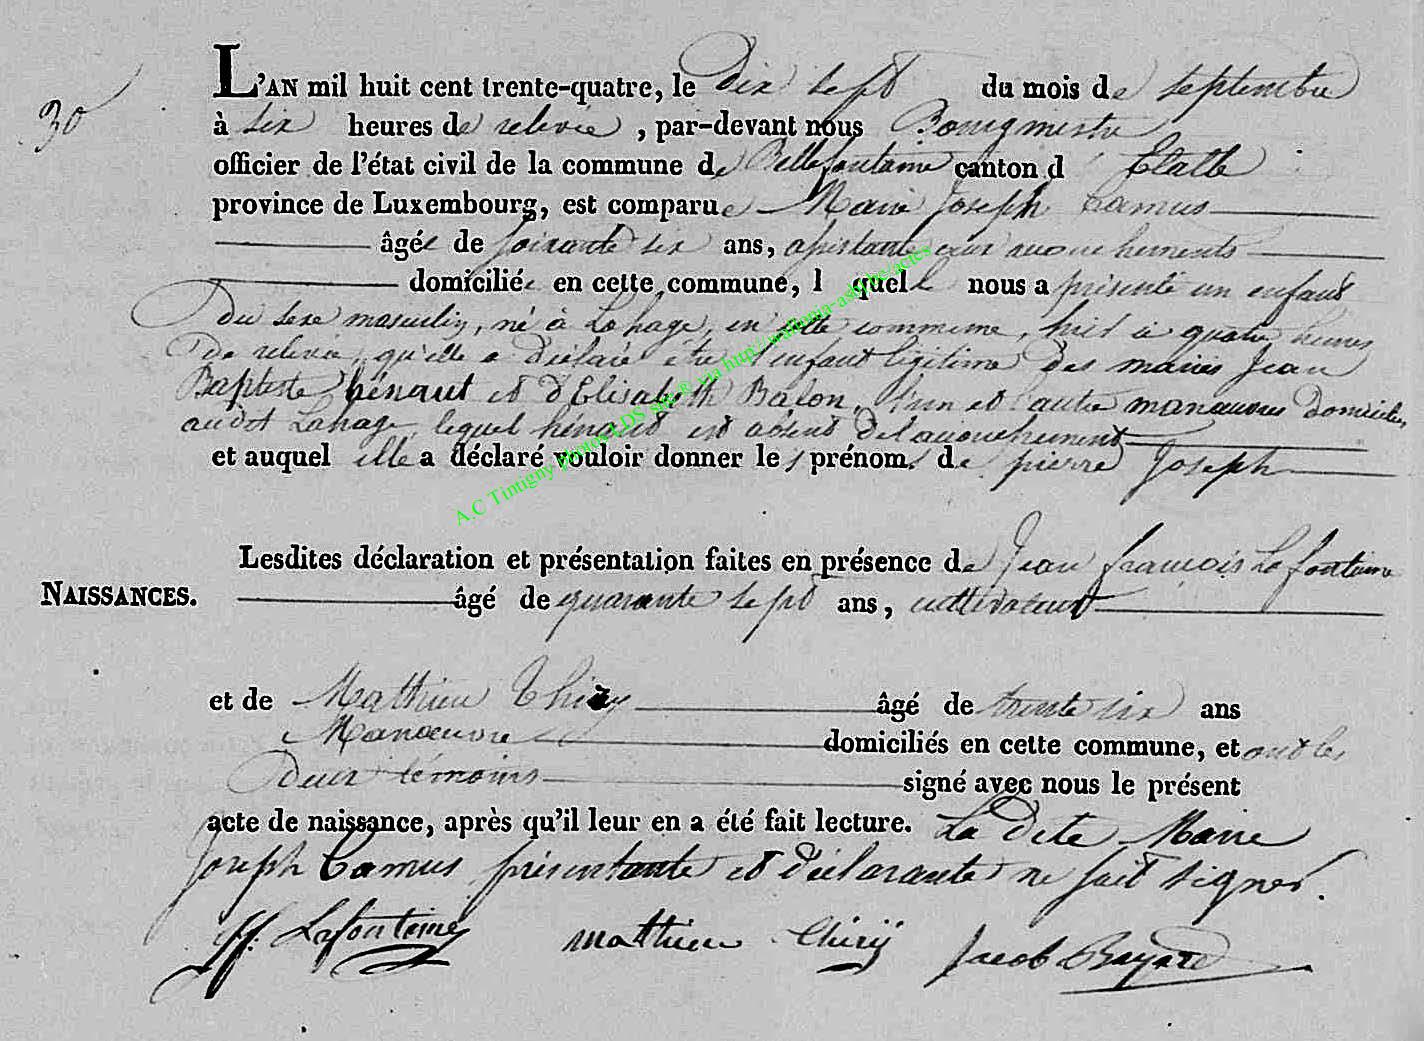 30
L'AN mil huit cent trente-quatre, le dix sept du mois de septembre
à six heures de relevée, par-devant nous Bourgmestre
officier de l'état civil de la commune de Bellefontaine canton d'Etalle
province de Luxembourg, est comparue Marie Joseph Camus
âgée de soixante six ans, assistante aux accouchements
domiciliée en cette commune, l quelle nous a présenté un enfant
du sexe masculin, né à Lahage, en cette commune, à quatre heures
de relevée, qu'elle a déclaré être l'enfant légitime des mariés Jean
Baptiste hénaut et d'Elisabeth Balon, l'un et l'autre manœuvres domiciliés
audit Lahage, lequel hénaut est absent de l'accouchement
et auquel elle a déclaré vouloir donner les prénoms de pierre Joseph
Lesdites déclaration et présentation faites en présence de Jean françois Lafontaine
NAISSANCES.
âgé de quarante sept ans, cultivateur
et de Mathieu Thiry âgé de trente six ans
Manœuvre domiciliés en cette commune, et ont les
deux témoins signé avec nous le présent
acte de naissance, après qu'il leur en a été fait lecture. La dite Marie
Joseph Camus présentante et déclarante ne sait signer.
Lafontaine mathieu thirÿ Jacob Bayard
A.C Tintigny photos LDS via http://wallonia-asbl.be/actes